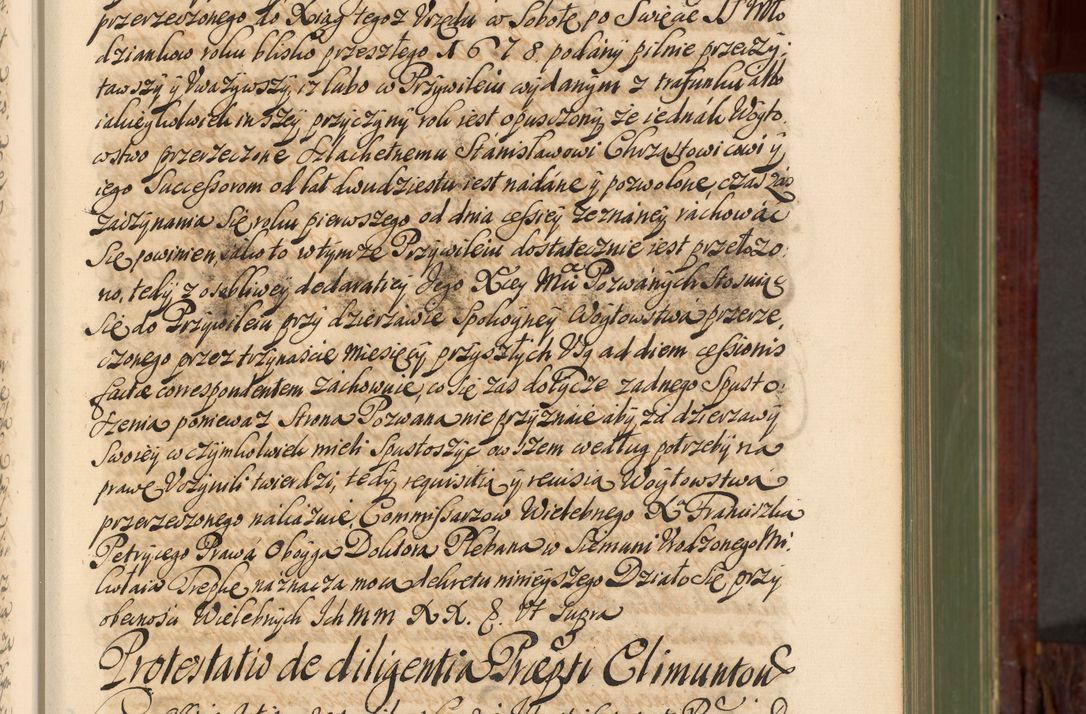 przerzeczonego do Xiąg tego z Vrzędu w Sobotę po Swięcie S. Mło
dziankow roku blisko przeszłego 1678 podany pilnie przeczy
tawszy y Vwazywszy, iz lubo w Przywileiu wydanym z trafunku albo
iakieykolwiek inszey przyczyny rok iest opusczony, ze iednák Woyto
wstwo przerzeczone Szlachetnemu Stánisławowi Chrząstowicowi y
iego Successorom od lat dwudziestu iest nádane y pozwolone, czas zaś
zaczynania się roku pierwszego od dnia cessiey zeznáney ráchowáć
się powinien iako to w tymze Przywileiu dostatecznie iest przełozo
no, tedy z osobliwey declaratiey Jego Xcey Mci Pozwánych stosuiąc
się do Przywileiu przy dzierzawie spokoyney Woytowstwa przerze
czonego przez trzynascie Miesięcy przyszłych Vsq ad diem cessionis
factæ correspondentem záchowuie, co się zas dotycze zadnego Spusto
szenia poniewaz Strona Pozwana nie przyznaie aby za dzierzawy
swoiey w czymkolwiek mieli spustoszyć owszem według potrzeby na
prawę Vczynili twierdzi, tedy requisitią y reuisią Woytowstwa
przerzeczonego nakazuie, Commissarzow Wielebnego X. Franciszka
Petrycego Prawá Oboyga Doktora Plebana w Siemuni Vrodzonego Mi
kołaia Trepkę naznacza moca dekretu ninieyszego Działo się przy
obecnosci Wielebnych Ich mm XX. &. Vt Supra
Protestatio de diligentia Præpti Climuntow